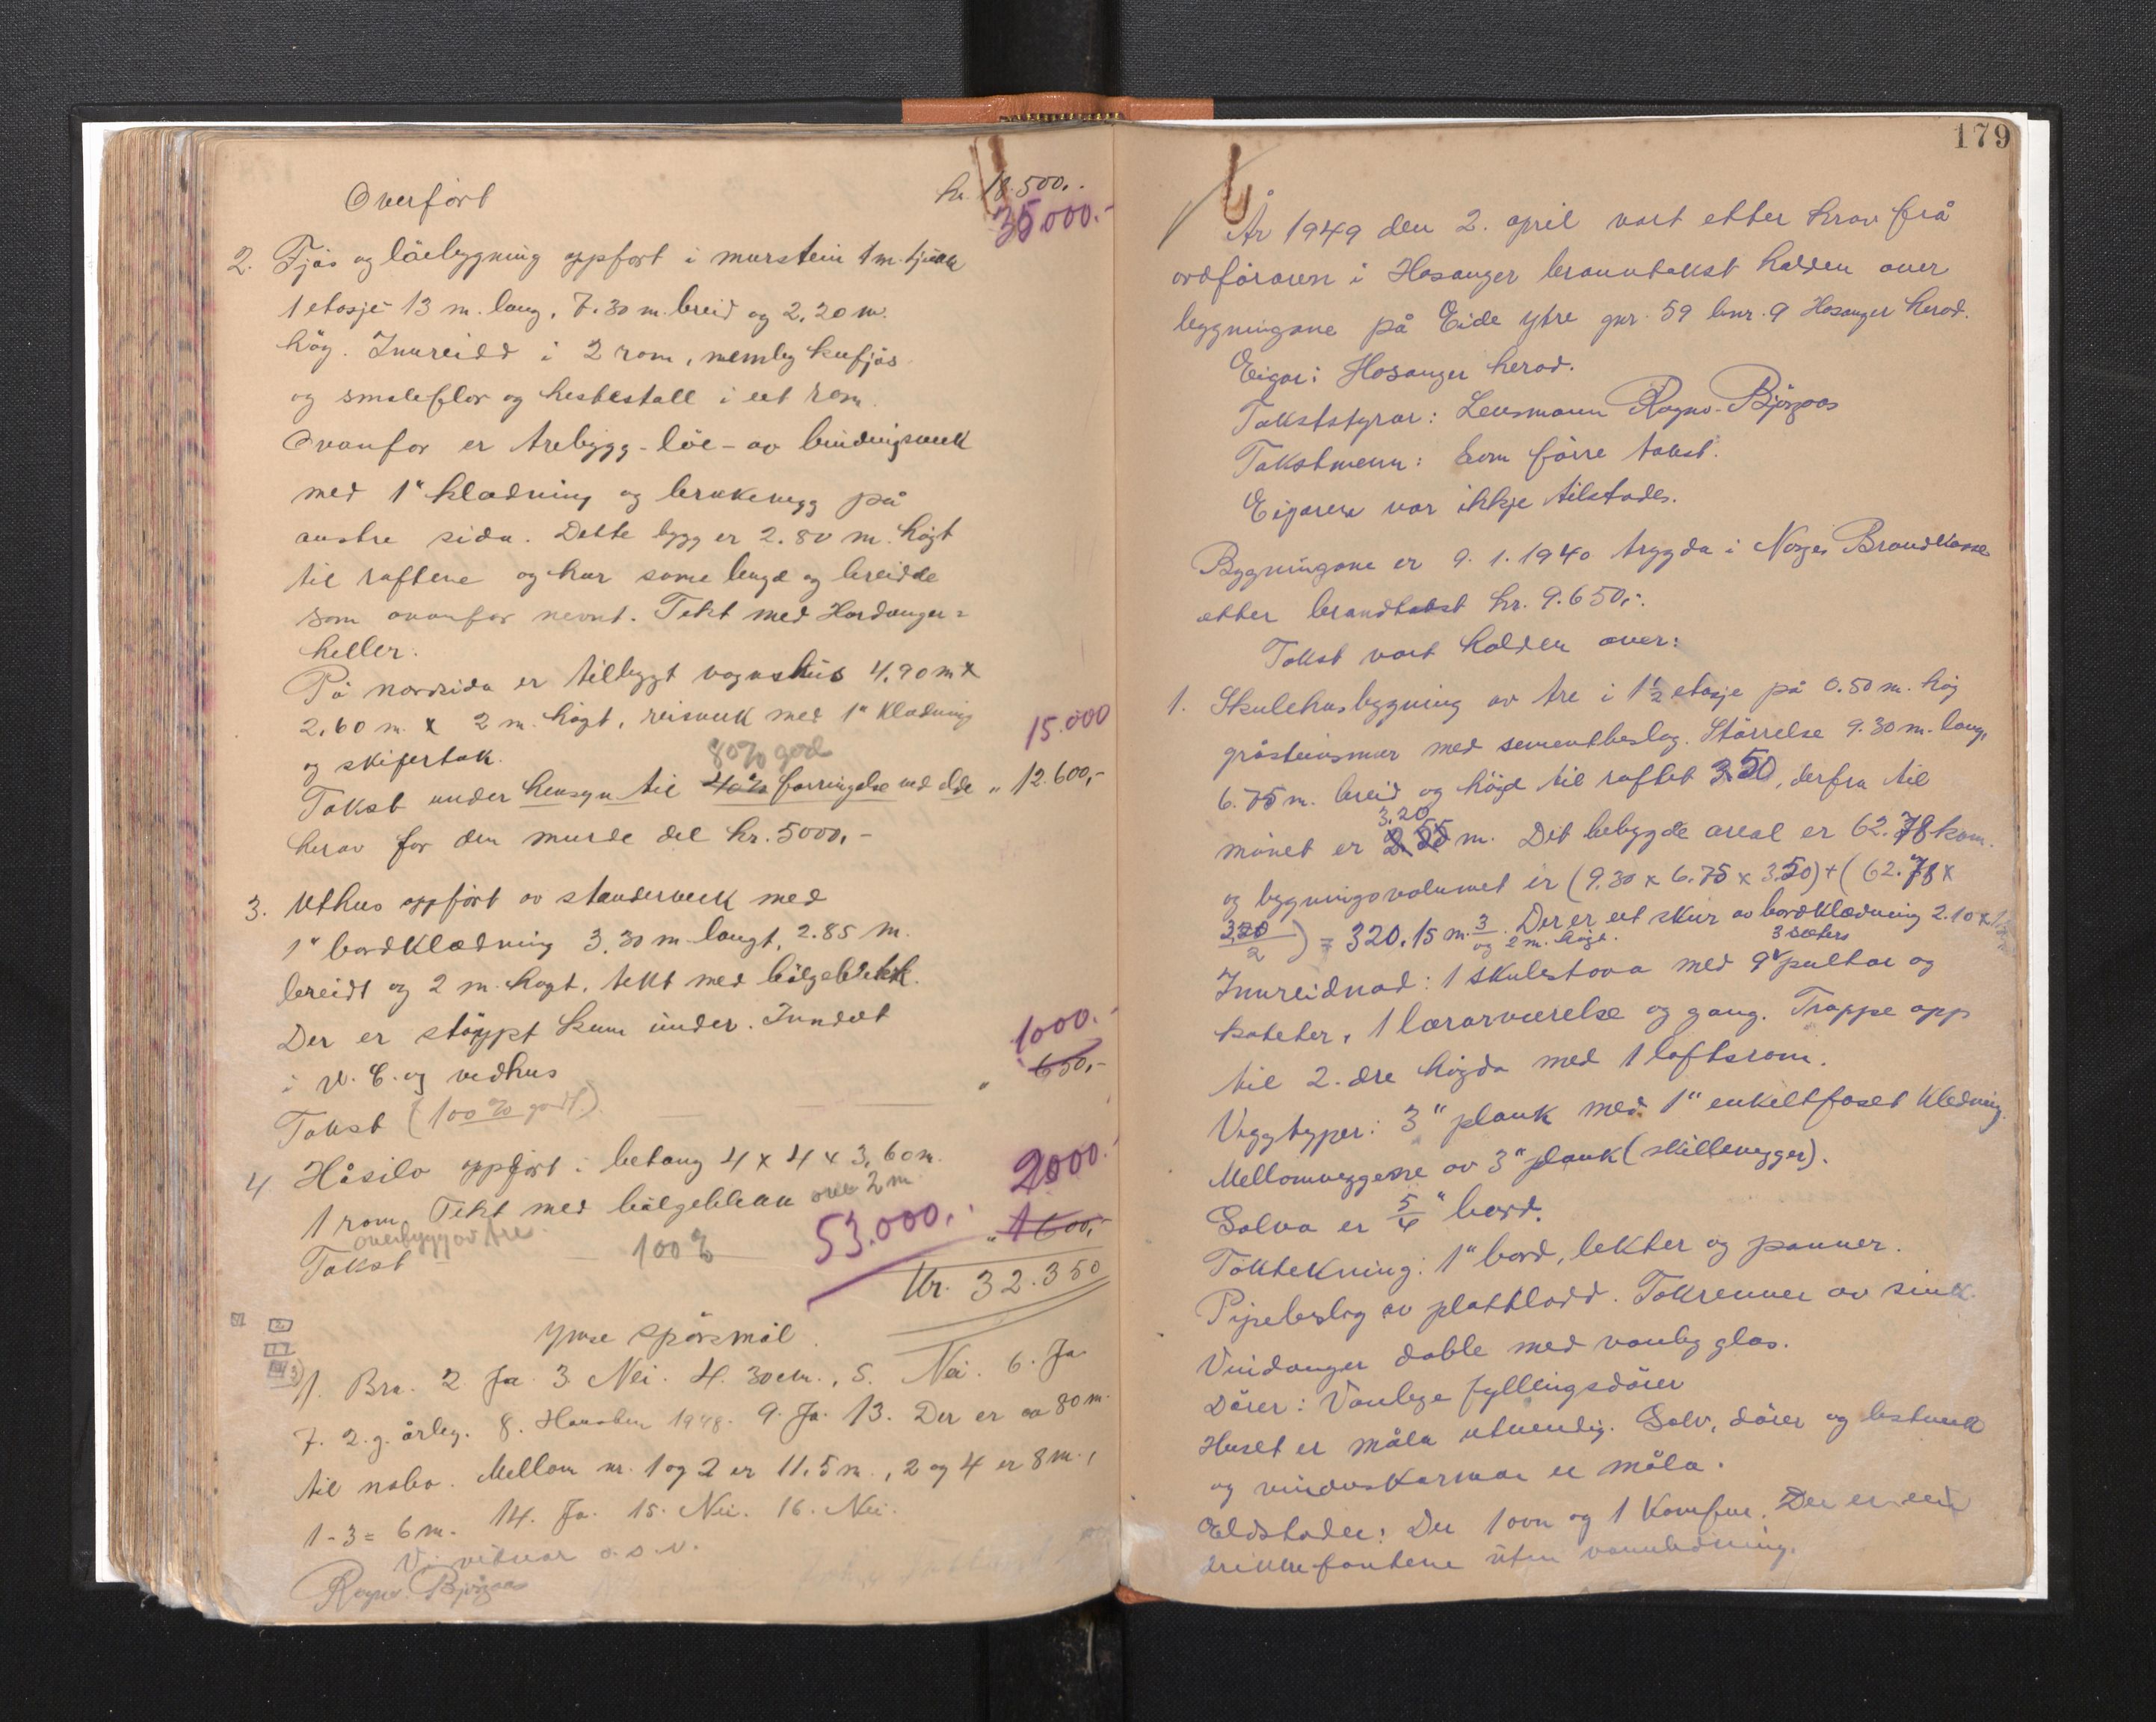 Overfört kr. 18.500,-
35000.-
2. Fjös og löebygning oppfört i murstein 1 m. tjukk
1 etasje 13 m. lang, 7.30 m. breid og 2,20 m.
hög. Innreidd i 2 rom, nemleg kufjös
og smaleflor og hestestall i eit rom.
Ovanfor er trebygg - löe - av bindingsverk
med 1" kledning og brukevegg på
austre sida. Dette bygg er 2.80 m. högt
til raftene og har same lengd og breidde
som ovanfor nevnt. Tekt med Hardanger=
heller.
På nordsida er tilbygt vognshus 4,90 m x
2,60 m. x 2 m. högt, reisverk med 1" kledning
og skifertak. 80% god 15.000
Takst under hensyn til 40% forringelse ved elde " 12.600,-
herav for den murde del kr. 5000,-
3. Uthus oppfört av standerverk med
1" bordkledning 3.30 m langt, 2.85 m.
breidt og 2 m. högt, tekt med bölgeblekk.
Der er stöypt kum under. Inndelt
i W.C. og vedhus 1000.-
Takst (100% godt.) " 650,-
4 Håsilo oppfört i betong 4 x 4 x 3,60 m.
1 rom. Tekt med bölgeblekk over 2 m 2000.-
overbygg av tre
Takst 100% 53.000.- " 1600,-
Kr. 32.350
Ymse spörsmål.
1. Bra. 2. Ja. 3. Nei. 4. 30 cm., 5. Nei. 6. Ja.
7. 2. g. årleg. 8. Hausten 1948. 9. Ja. 13. Der er ca 80 m.
til nabo. Mellom nr. 1 og 2 er 11.5 m., 2 og 4 er 8 m.,
1-3 = 6 m. 14. Ja. 15. Nei. 16. Nei.
Vi vitnar o.s.v.
Ragnv. Björgaas
179
År 1949 den 2. april vart etter krav frå
ordföraren i Hosanger branntakst halden over
bygningane på Eide ytre gnr. 59 bnr. 9 Hosanger herad.
Eigar: Hosanger herad.
Takststyrar: Lensmann Ragnv. Björgaas
Takstmenn: Som förre takst.
Eigaren var ikkje tilstades.
Bygningane er 9.1.1940 trygda i Norges Brandkasse
etter brandtakst kr. 9.650,-.
Takst vart halden over:
1. Skulehusbygning av tre i 1½ etasje på 0.50 m. hög
gråsteinsmur med sementbeslag. Störrelse 9.30 m. lang,
6.75 m. breid og högd til raftet 3.50, derfra til
3.20
mönet er 2.55 m. Det bebygde areal er 62.78 kvm.
og bygningsvolumet er (9.30 x 6.75 x 3.50) + (62.78 x
3,20/2) = 320.15 m.3. Der er eit skur av bordkledning 2.10 x
og 2 m. högt. 3 seters
Innreidnad: 1 skulestova med 9 pultar og
kateter, 1 lærarværelse og gang. Trappe opp
til 2. dre högda med 1 loftsrom.
Veggtyper: 3" plank med 1" enkeltfaset kledning.
Mellomveggene av 3" plank (skillevegger).
Golva er 5/4" bord.
Taktekning: 1" bord, lekter og panner.
Pipebeslag av platebladd. Takrenner av sink.
Vindauger doble med vanleg glas.
Dörer: Vanlege fyllingsdörer
Huset er måla utvendig. Golv, dörer og listverk
og vinduskarmar er måla.
Eldstader: Der 1 ovn og 1 komfur. Der er ein
drikkefontene uten vannledning.